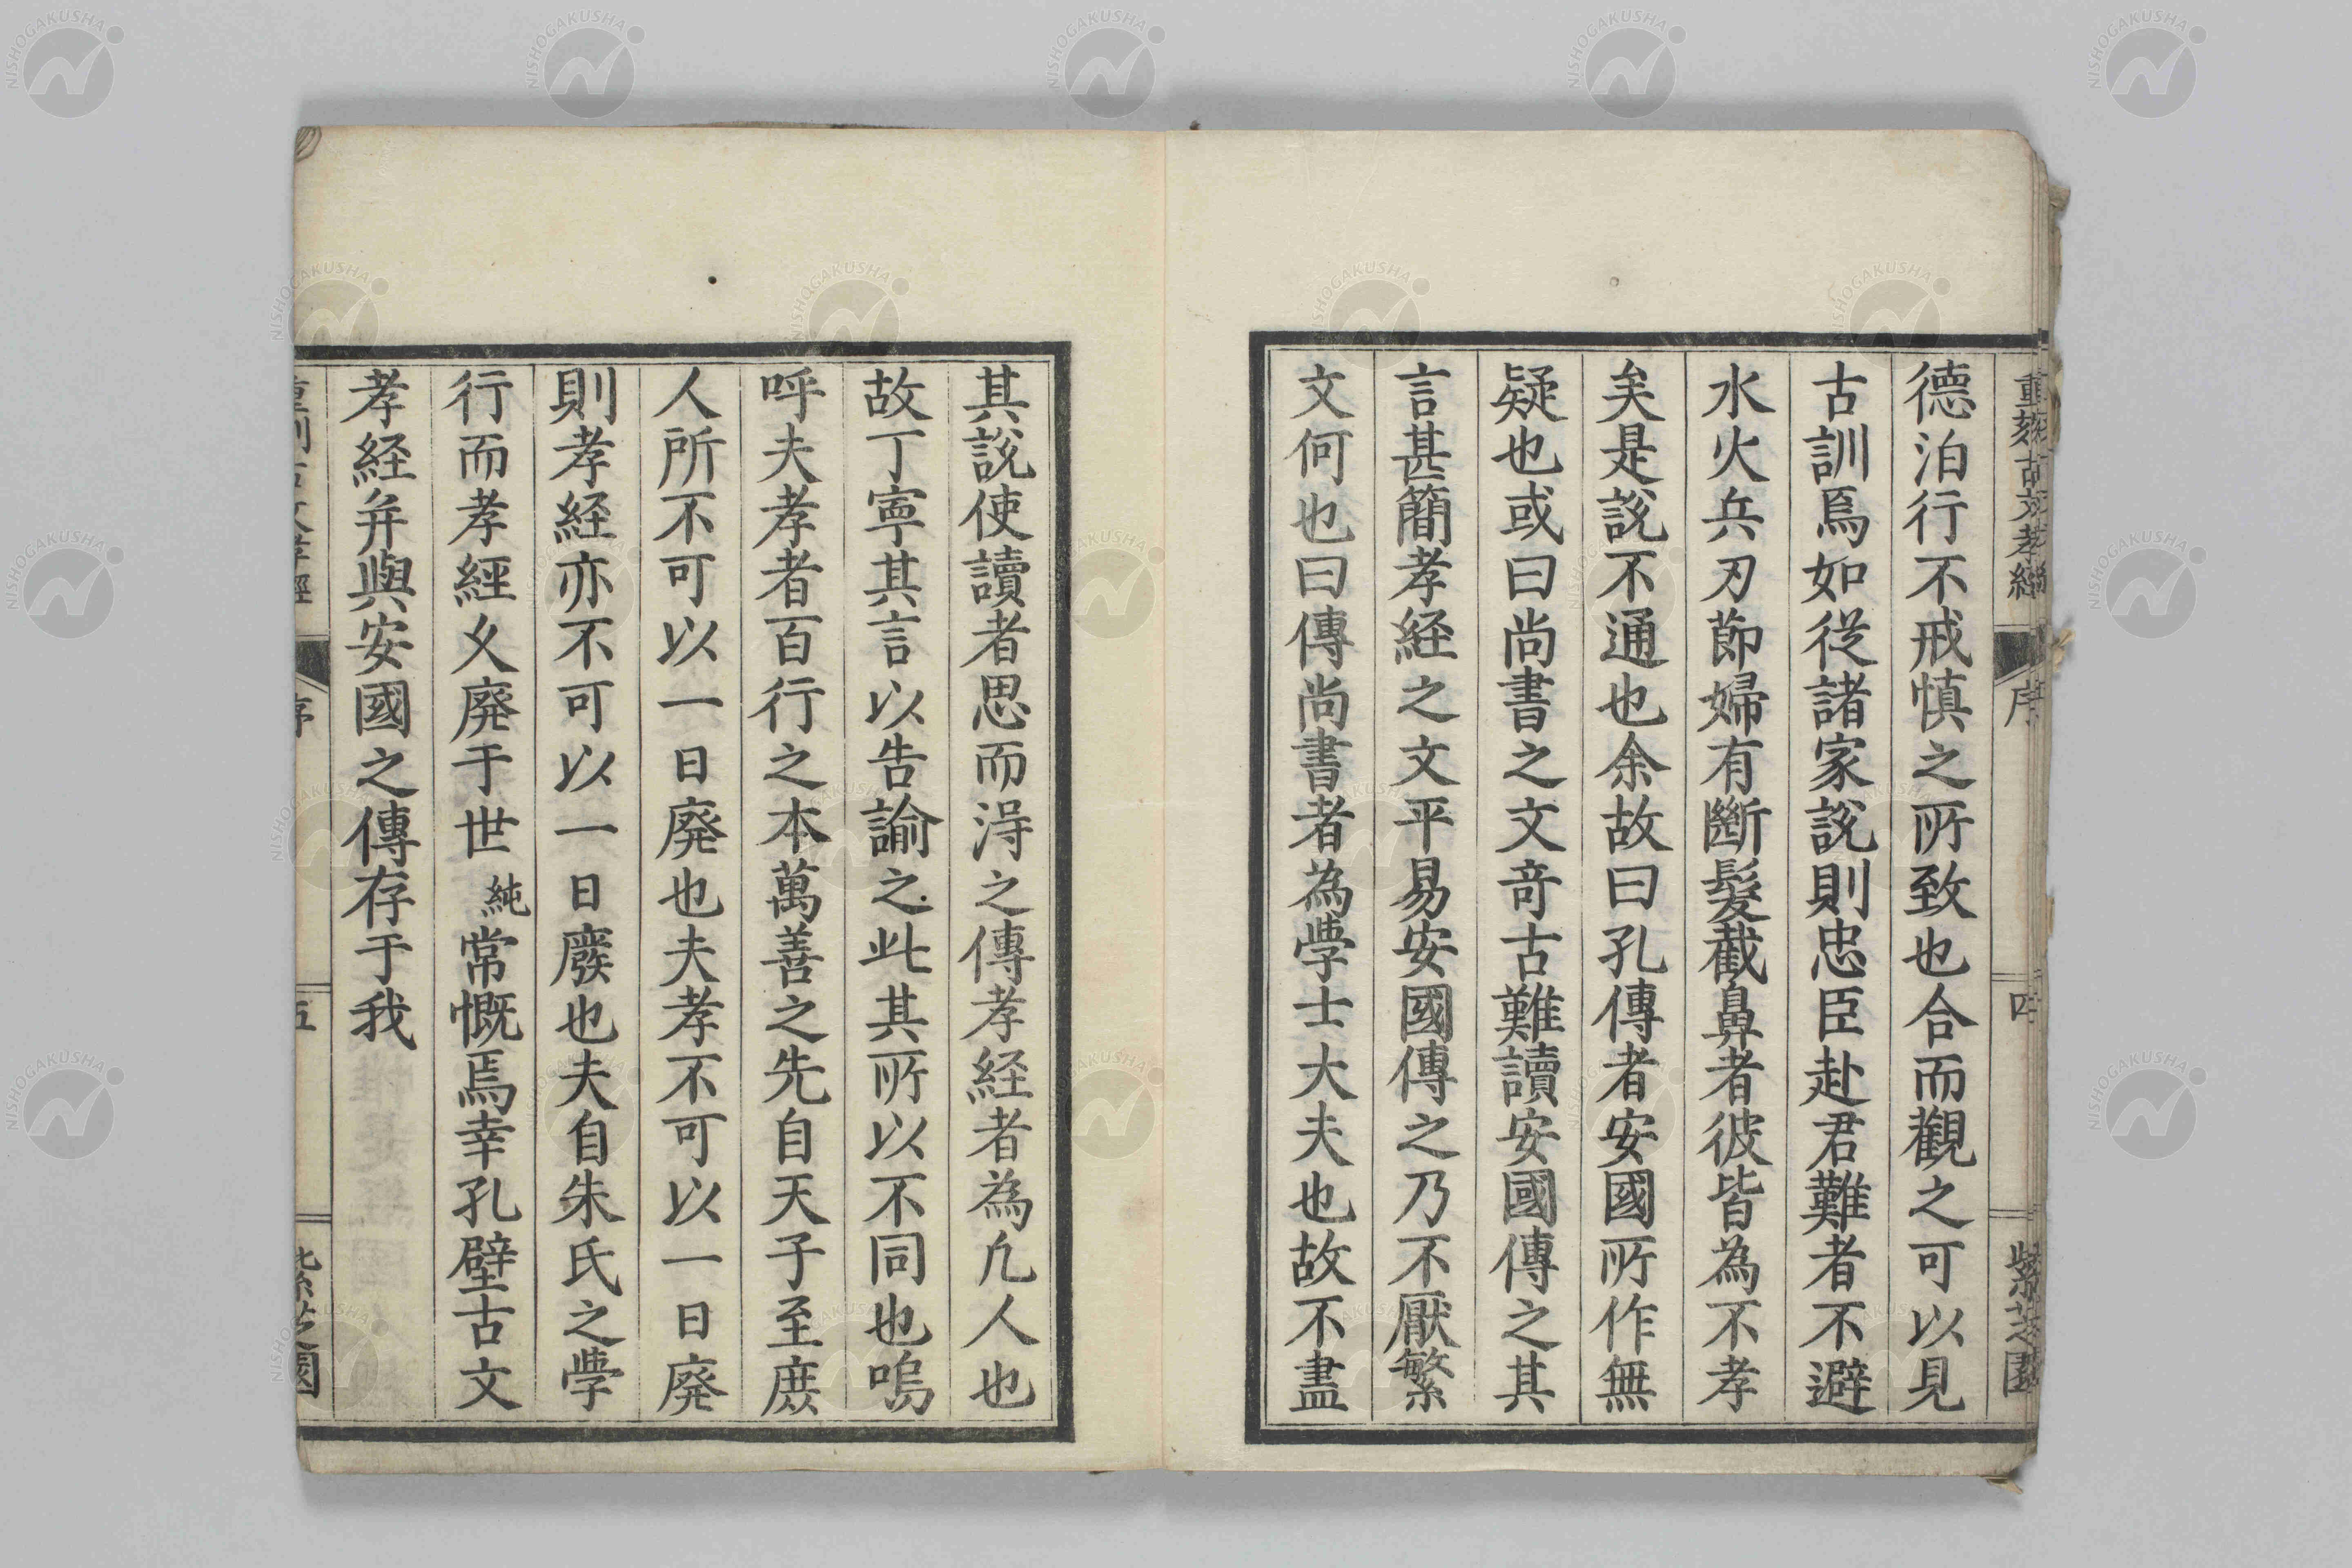 德泊行不戒慎之所致也合而觀之可以見
古訓焉如從諸家說則忠臣赴君難者不避
水火兵刃節婦有斷髮截鼻者彼皆為不孝
矣是說不通也余故曰孔傳者安國所作無
疑也或曰尚書之文奇古難讀安國傳之其
言甚簡孝経之文平易安國傳之乃不厭繁
文何也曰傳尚書者為學士大夫也故不盡
其說使讀者思而得之傳孝経者為凡人也
故丁寧其言以告諭之此其所以不同也嗚
呼夫孝者百行之本萬善之先自天子至庶
人所不可以一日廢也夫孝不可以一日廢
則孝経亦不可以一日廢也夫自朱氏之學
行而孝經乆廢于世純常慨焉幸孔壁古文
孝経弁與安國之傳存于我
重刻古文孝經
序
四
紫芝園
重刻古文孝經
序
五
紫芝園
NISHOGAKUSHA